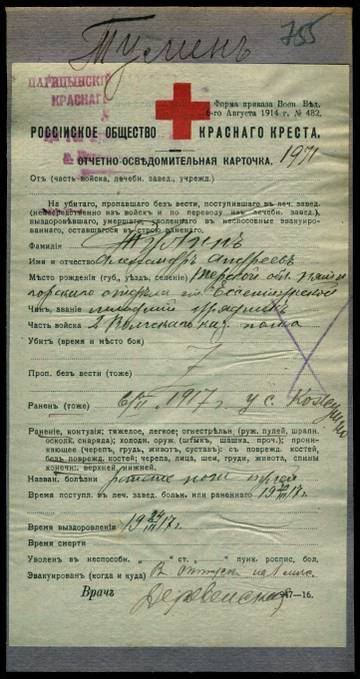 Тулинъ 755
ЦАРИЦЫНСКІЙ
КРАСНАГО
Форма приказа Воен. Вѣд.
6-го Августа 1914 г. № 482.
РОССІЙСКОЕ ОБЩЕСТВО КРАСНАГО КРЕСТА.
ОТЧЕТНО-ОСВѢДОМИТЕЛЬНАЯ КАРТОЧКА. 1971
Отъ (часть войска, лечебн. завед., учрежд.)
На убитаго, пропавшаго безъ вести, поступившаго въ леч. завед.
(непосредственно изъ войскъ и по переводу изъ лечебн. завед.),
выздоровѣвшаго, умершаго, уволеннаго въ неспособные, эвакуиро-
ваннаго, оставшагося въ строю раненаго.
Фамилія Тулинъ
Имя и отчество Андреевъ
Мѣсто рожденія (губ., уѣзд., селеніе) Терской обл. Пяти-
горскаго отдѣла ст. Ессентукской
Чин. званіе
Часть войска 2 каз. полка
Убитъ (время и мѣсто боя)
Проп. безъ вести (тоже)
Раненъ (тоже) 6/II 1917 г. у с.
Раненіе, контузія: тяжелое, легкое; огнестрѣльн. (руж. пулей, шрапн.
осколк. снаряда); холодн. оруж. (штыкъ, шашка, проч.); прони-
кающее (черепъ, грудь, животъ, суставъ); съ поврежд. костей,
безъ поврежд. костей; черепа, лица, шеи, груди, живота, спины
конечн.: верхней, нижней.
Назван. болѣзни ноги пулей
Время поступл. въ леч. завед. больн. или раненнаго 19 17 г.
Время выздоровленія 19 17 г.
Время смерти
Уволенъ въ неспособн. „ “ ст. „ “ пунк. роспис. бол.
Эвакуированъ (когда и куда) Въ отпускъ на 1 мѣс.
Врачъ 47—16.